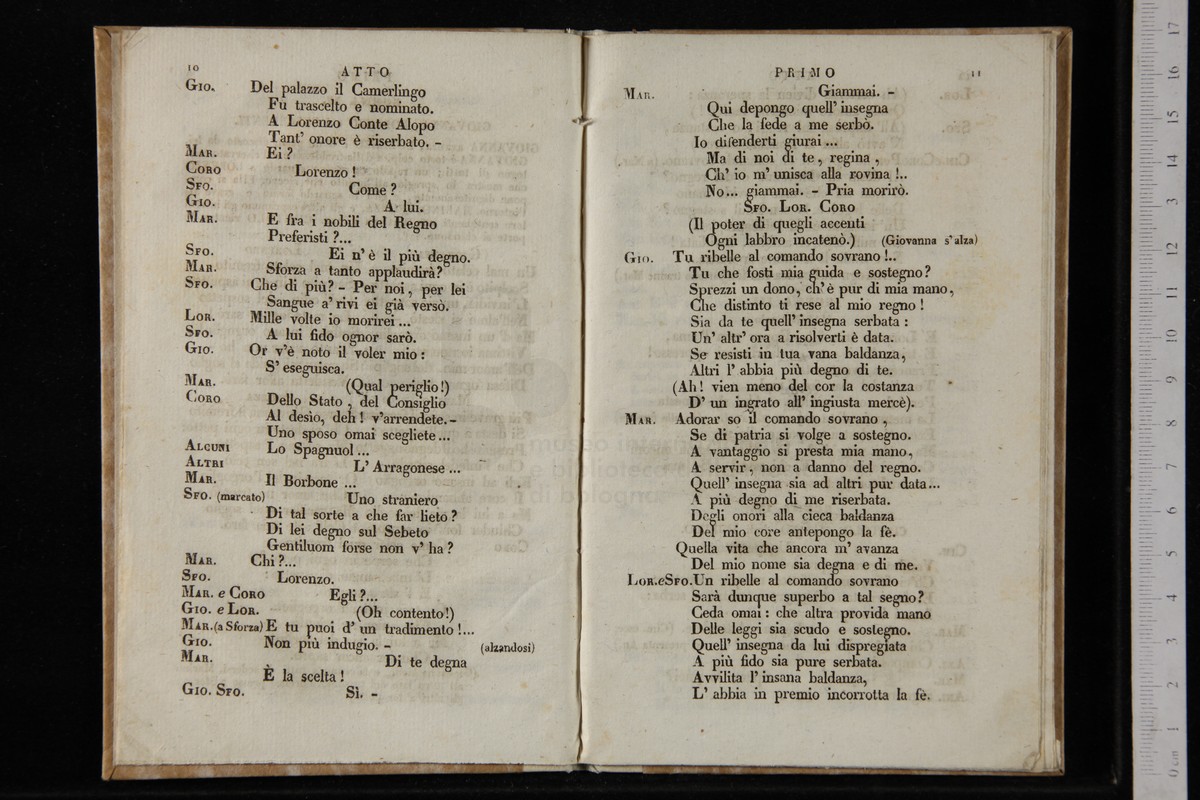 10
ATTO
Gio. Del palazzo il Camerlingo
Fu trascelto e nominato.
A Lorenzo Conte Alopo
Tant' onore è riserbato. -
Mar. Ei ?
Coro Lorenzo !
Sfo. Come ?
Gio. A lui.
Mar. E fra i nobili del Regno
Preferisti ?...
Sfo. Ei n' è il più degno.
Mar. Sforza a tanto applaudirà?
Sfo. Che di più? - Per noi, per lei
Sangue a' rivi ei già versò.
Lor. Mille volte io morirei ...
Sfo. A lui fido ognor sarò.
Gio. Or v'è noto il voler mio :
S' eseguisca.
Mar. (Qual periglio!)
Coro Dello Stato, del Consiglio
Al desìo, deh ! v'arrendete. -
Uno sposo omai scegliete ...
Alcuni Lo Spagnuol ...
Altri L' Arragonese ...
Mar. Il Borbone ...
Sfo. (marcato) Uno straniero
Di tal sorte a che far lieto ?
Di lei degno sul Sebeto
Gentiluom forse non v' ha ?
Mar. Chi ?...
Sfo. Lorenzo.
Mar. e Coro Egli ?...
Gio. e Lor. (Oh contento!)
Mar. (a Sforza) E tu puoi d' un tradimento !...
Gio. Non più indugio. - (alzandosi)
Mar. Di te degna
È la scelta !
Gio. Sfo. Sì. -
PRIMO
11
Mar. Giammai. -
Qui depongo quell' insegna
Che la fede a me serbò.
Io difenderti giurai ...
Ma di noi di te, regina ,
Ch' io m' unisca alla rovina !..
No... giammai. - Pria morirò.
Sfo. Lor. Coro
(Il poter di quegli accenti
Ogni labbro incatenò.) (Giovanna s'alza)
Gio. Tu ribelle al comando sovrano !..
Tu che fosti mia guida e sostegno ?
Sprezzi un dono, ch' è pur di mia mano,
Che distinto ti rese al mio regno !
Sia da te quell' insegna serbata :
Un' altr' ora a risolverti è data.
Se resisti in tua vana baldanza,
Altri l' abbia più degno di te.
(Ah ! vien meno del cor la costanza
D' un ingrato all' ingiusta mercè).
Mar. Adorar so il comando sovrano ,
Se di patria si volge a sostegno.
A vantaggio si presta mia mano,
A servir, non a danno del regno.
Quell' insegna sia ad altri pur data...
A più degno di me riserbata.
Degli onori alla cieca baldanza
Del mio core antepongo la fè.
Quella vita che ancora m' avanza
Del mio nome sia degna e di me.
Lor. e Sfo. Un ribelle al comando sovrano
Sarà dunque superbo a tal segno?
Ceda omai : che altra provida mano
Delle leggi sia scudo e sostegno.
Quell' insegna da lui dispregiata
A più fido sia pure serbata.
Avvilita l' insana baldanza,
L' abbia in premio incorrotta la fè.